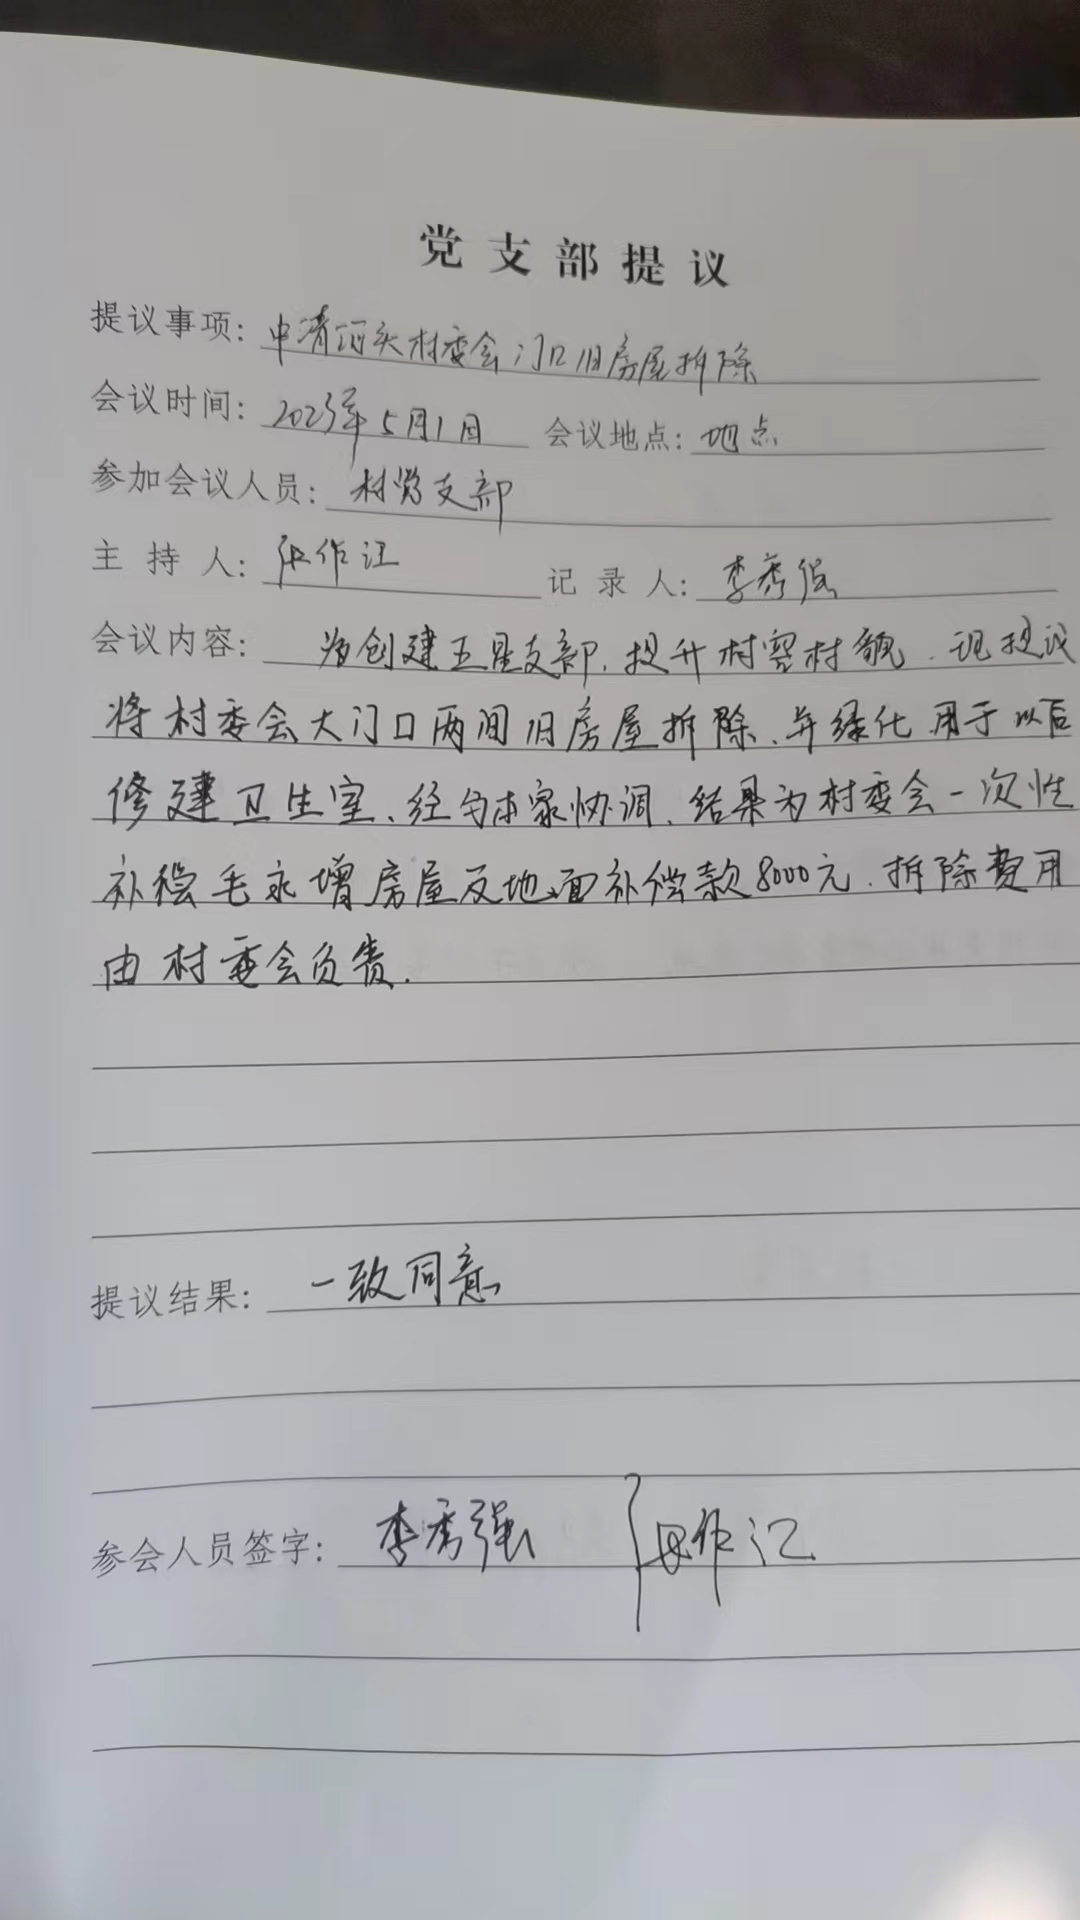 党支部提议
提议事项: 中清河头村委会门口旧房屋拆除
会议时间: 2023年5月1日 会议地点: 地点
参加会议人员: 村党支部
主持人: 张作江 记录人: 李秀强
会议内容: 为创建五星支部、提升村容村貌、现提议
将村委会大门口两间旧房屋拆除、并绿化用于以后
修建卫生室、经与本家协调、结果为村委会一次性
补偿毛永增房屋及地面补偿款8000元、拆除费用
由村委会负责.
提议结果: 一致同意
参会人员签字: 李秀强 张作江